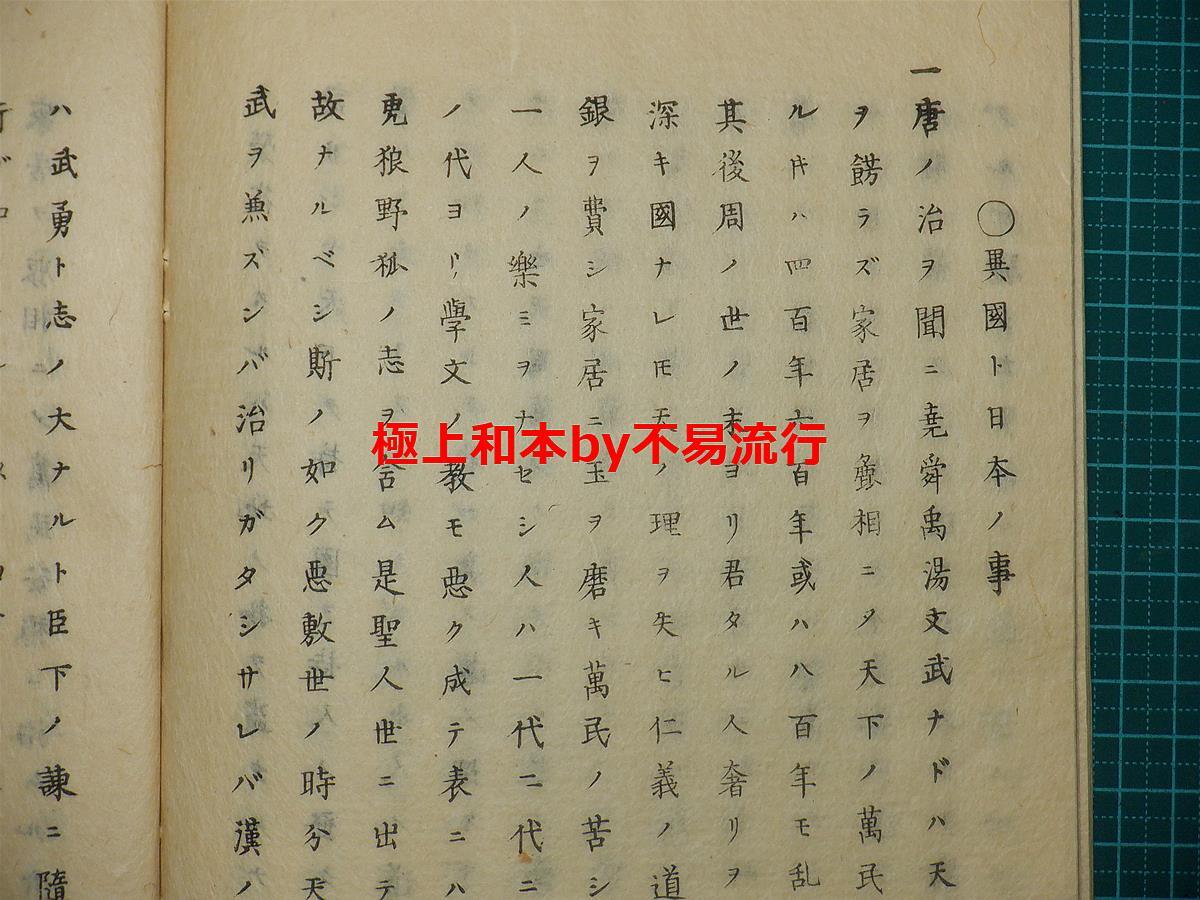 ○異國ト日本ノ事
一唐ノ治ヲ聞ニ堯舜禹湯文武ナドハ天
ヲ餝ラズ家居ヲ麁相ニ〆天下ノ萬民
ルヿハ四百年六百年或ハ八百年モ乱
其後周ノ世ノ末ヨリ君タル人奢リヲ
深キ國ナレ𪜈天ノ理ヲ失ヒ仁義ノ道
銀ヲ費シ家居ニ玉ヲ磨キ萬民ノ苦シ
一人ノ樂ミヲナセシ人ハ一代二代ニ
ノ代ヨリ學文ノ教モ悪ク成テ表ニハ
狼野狐ノ志ヲ含ム是聖人世ニ出テ
故ナルベシ斯ノ如ク悪敷世ノ時分天
武ヲ兼ズンバ治リガタシサレバ漢ノ
ハ武勇ト志ノ大ナルト臣下ノ諫ニ隨
極上和本by不易流行